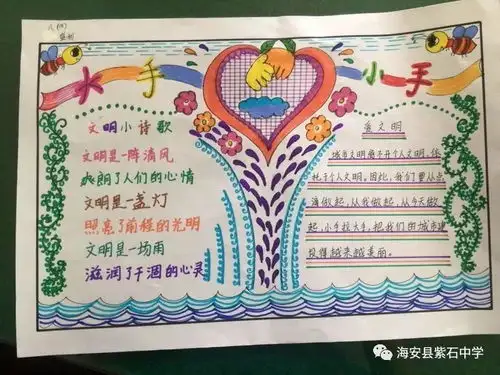 八(四)
大手
小手
文明小诗歌
文明是一阵清风
爽朗了人们的心情
文明是一盏灯
照亮了前程的光明
文明是一场雨
滋润了干涸的心灵
道文明
城市文明离不开个人文明,依
托于个人文明。因此,我们要从点
滴做起,从我做起,从今天做
起,小手拉大手,把我们的城市建
设得越来越美丽。
海安县紫石中学